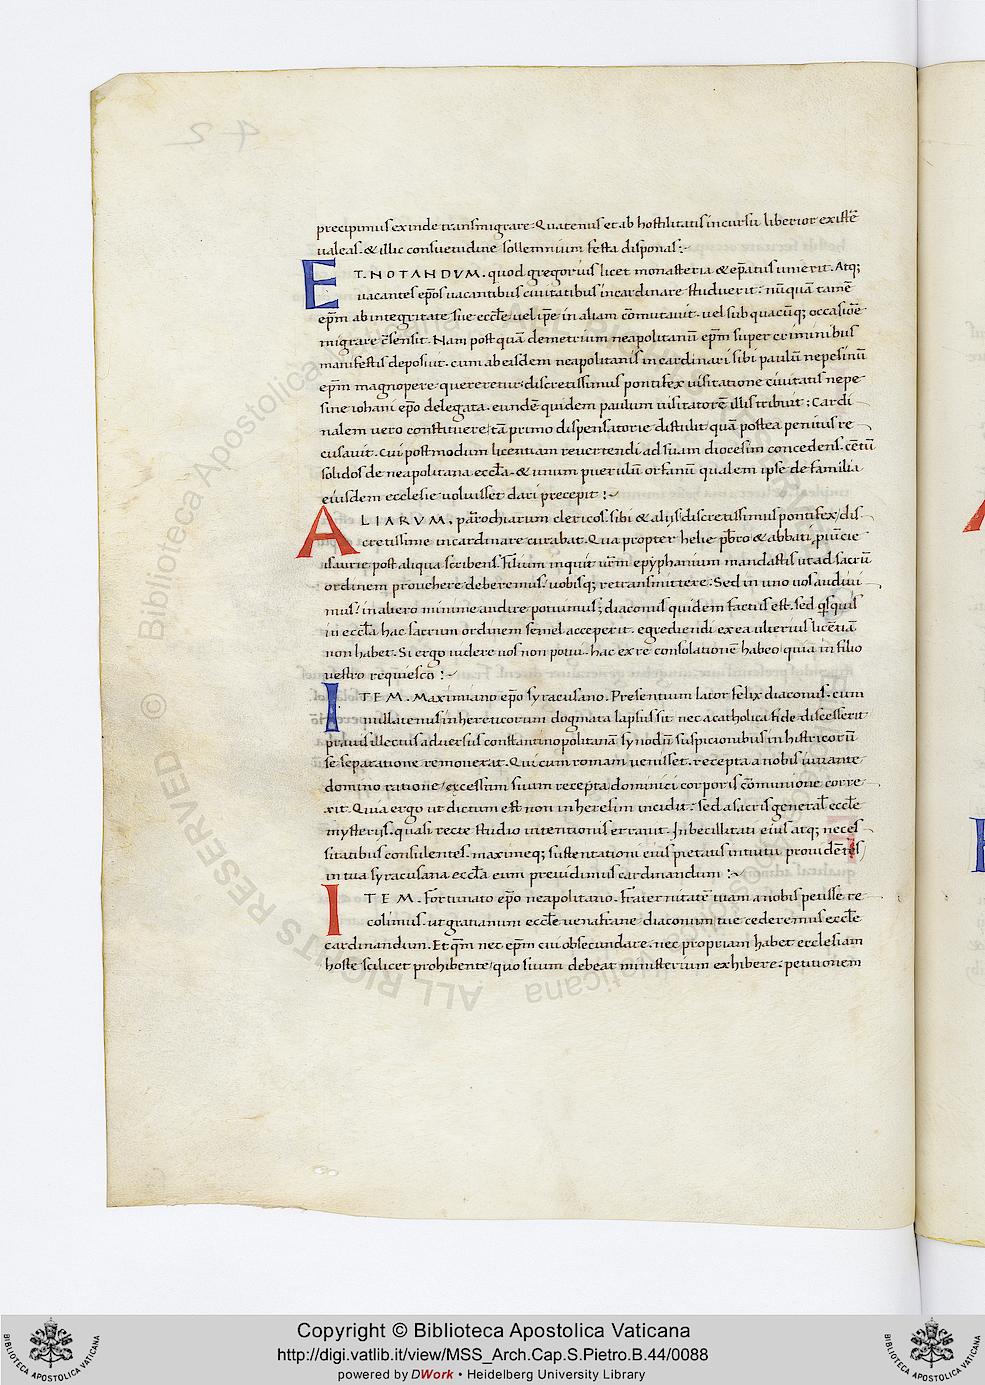 precipimus exinde transmigrare. Quatenus et ab hostilitatis incursu liberior existē
ualeas. & illic consuetudine sollemnium festa disponas:~
ET. NOTANDVM. quod gregorius licet monasteria & ep̄atus unierit. Atq;
uacantes ep̄os uacantibus ciuitatibus incardinare studuerit: nūquā tamē
ep̄m ab integritate sue eccl̄e. uel ip̄e in aliam cōmutauit. uel sub quacūq; occasiōe
migrare c̄sensit. Nam post quā demetrium neapolitanū ep̄m super criminibus
manifestis deposuit. cum ab eisdem neapolitanis incardinari sibi paulū nepesinū
ep̄m magnopere quereretur: discretissimus pontifex uisitatione ciuitatis nepe
sine iohani ep̄o delegata. eundē quidem paulum uisitatorē illis tribuit: Cardi
nalem uero constituere, tā primo dispensatorie distulit, quā postea penitus re
cusauit. Cui post modum licentiam reuertendi ad suam diocesim concedens. cētū
solidos de neapolitana eccl̄a. & unum puerulū orfanū qualem ipse de familia
eiusdem ecclesie uoluisset dari precepit:~
ALIARVM. parrochiarum clericos. sibi & alijs discretissimus pontifex dis
cretissime incardinare curabat. Qua propter helie pb̄ro & abbati puīcie
isaurie post aliqua scribens. Filium inquit ur̄m epyphanium mandastis ut ad sacrū
ordinem prouehere deberemus. uobisq; retransmittere. Sed in uno uos audiui
mus, in altero minime audire potuimus; diaconus quidem factus est. sed qsquis
in eccl̄a hac sacrum ordinem semel acceperit. egrediendi ex ea ulterius licētiā
non habet. Si ergo uidere uos non potui. hac ex re consolationē habeo, quia in filio
uestro requiesco:~
ITEM. Maximiano ep̄o syracusano. Presentium lator felix diaconus. cum
nullatenus in hereticorum dogmata lapsus sit nec a catholica fide discesserit
prauis illectus aduersus constantinopolitanā synodū suspicionibus in histricorū
se separatione remouerat. Qui cum romam uenisset. recepta a nobis iuuante
domino ratione, excessum suum recepta dominici corporis cōmunione corre
xit. Quia ergo ut dictum est non in heresim incidit. sed a sacris general̄ eccl̄e
mysterijs. quasi recte studio intentionis errauit. Inbecillitati eius atq; neces
sitatibus consulentes. maximeq; sustentationi eius pietatis intuitu prouidētes,
in tua syracusana eccl̄a eum preuidimus cardinandum:~
ITEM. Fortunato ep̄o neapolitano. Fraternitatē tuam a nobis petisse re
colimus. ut gratianum eccl̄e uenafrane diaconum tue cederemus eccl̄e
cardinandum. Et qm̄ nec ep̄m cui obsecundare. nec propriam habet ecclesiam
hoste scilicet prohibente, quo suum debeat ministerium exhibere. petitionem
Copyright © Biblioteca Apostolica Vaticana
http://digi.vatlib.it/view/MSS_Arch.Cap.S.Pietro.B.44/0088
powered by DWork • Heidelberg University Library